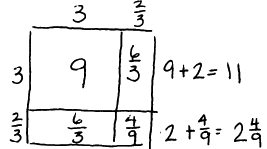 3 2/3
3 9 6/3 9+2=11
2/3 6/3 4/9 · 2+4/9=2 4/9